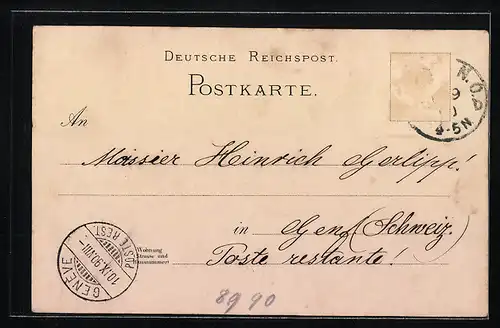 DEUTSCHE REICHSPOST.
POSTKARTE.
N.O.
9
4-5N
An
Mossier Heinrich Gerlipp!
in Genf (Schweiz.)
Wohnung
Strasse und
Hausnummer
Poste restante!
GENÈVE
10.IX.90.VIII-
POSTE REST.
8990